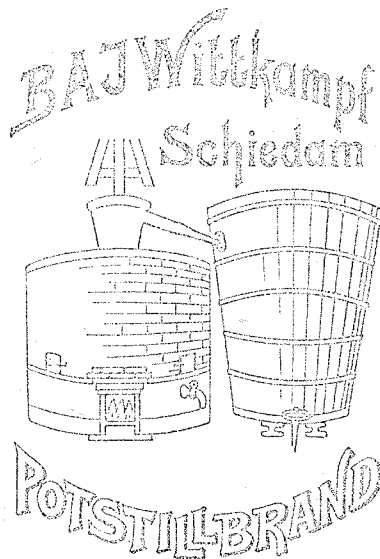 BAJ Wittkampf
Schiedam
POTSTILLBRAND